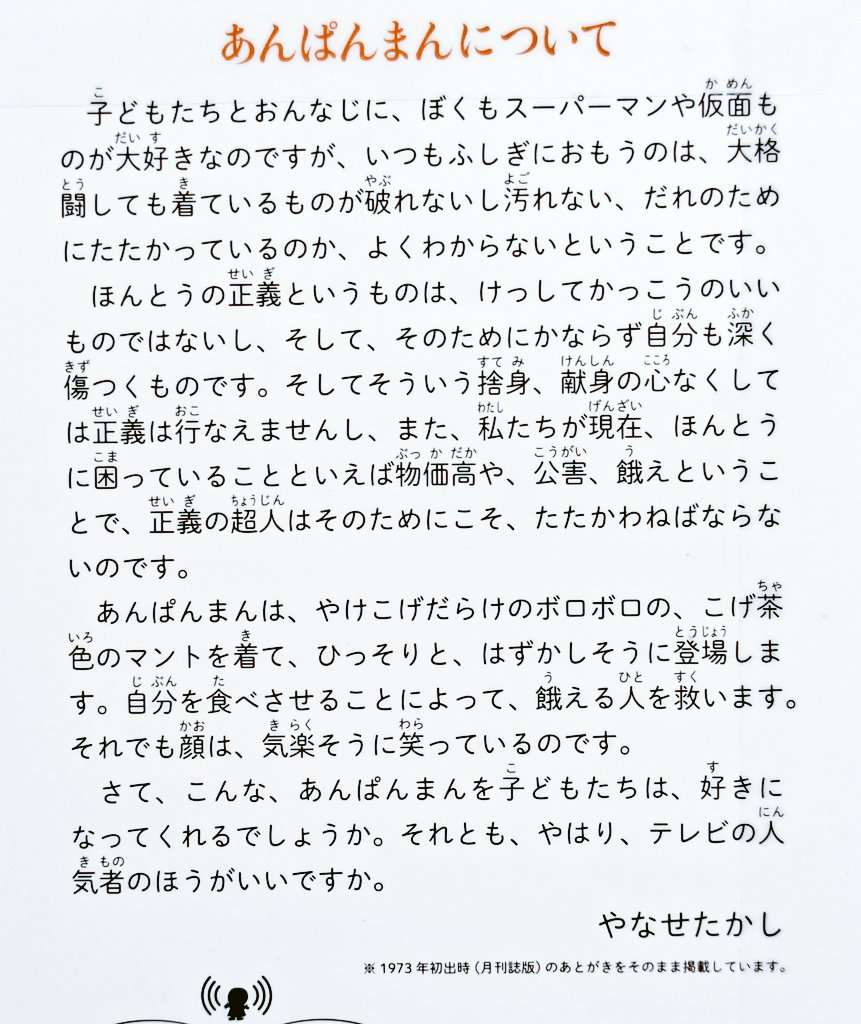 あんぱんまんについて
子どもたちとおんなじに、ぼくもスーパーマンや仮面も
のが大好きなのですが、いつもふしぎにおもうのは、大格
闘しても着ているものが破れないし汚れない、だれのため
にたたかっているのか、よくわからないということです。
ほんとうの正義というものは、けっしてかっこうのいい
ものではないし、そして、そのためにかならず自分も深く
傷つくものです。そしてそういう捨身、献身の心なくして
は正義は行なえませんし、また、私たちが現在、ほんとう
に困っていることといえば物価高や、公害、餓えというこ
とで、正義の超人はそのためにこそ、たたかわねばならな
いのです。
あんぱんまんは、やけこげだらけのボロボロの、こげ茶
色のマントを着て、ひっそりと、はずかしそうに登場しま
す。自分を食べさせることによって、餓える人を救います。
それでも顔は、気楽そうに笑っているのです。
さて、こんな、あんぱんまんを子どもたちは、好きに
なってくれるでしょうか。それとも、やはり、テレビの人
気者のほうがいいですか。
やなせたかし
※1973年初出時(月刊誌版)のあとがきをそのまま掲載しています。